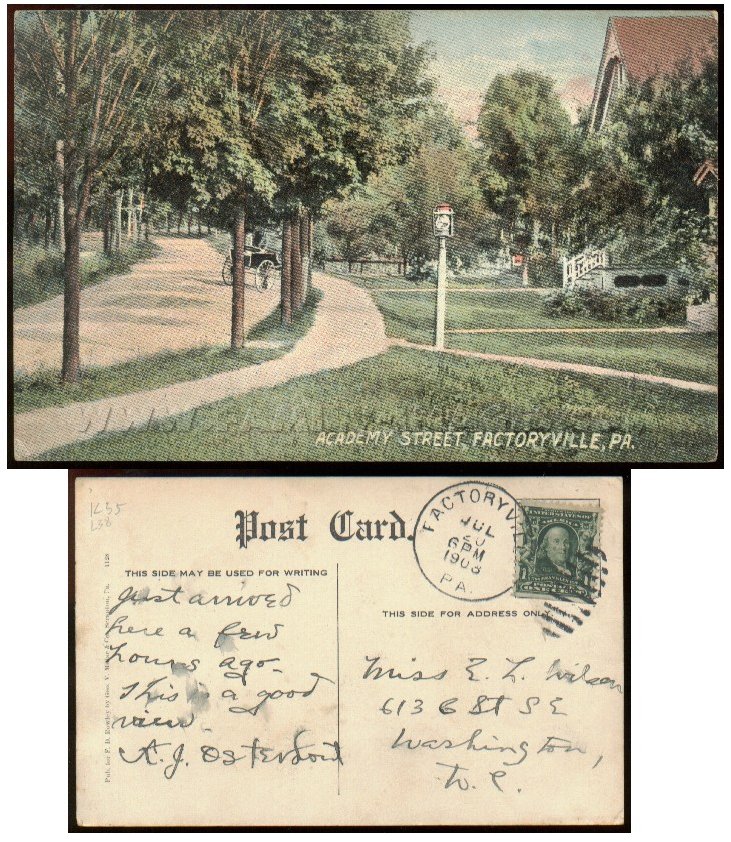 ACADEMY STREET, FACTORYVILLE, PA.
1285
Post Card.
FACTORYVILLE
JUL
20
6PM
1908
PA.
UNITED STATES OF
AMERICA
ONE CENT
THIS SIDE MAY BE USED FOR WRITING
THIS SIDE FOR ADDRESS ONLY
Just arrived
here a few
hours ago.
This is a good
view.
A. J. Osterhout
Miss E. L. Wilson
613 6 St S E
Washington,
D. C.
Pub. for F. D. Rowley by Geo. V. & Co. Scranton, Pa.